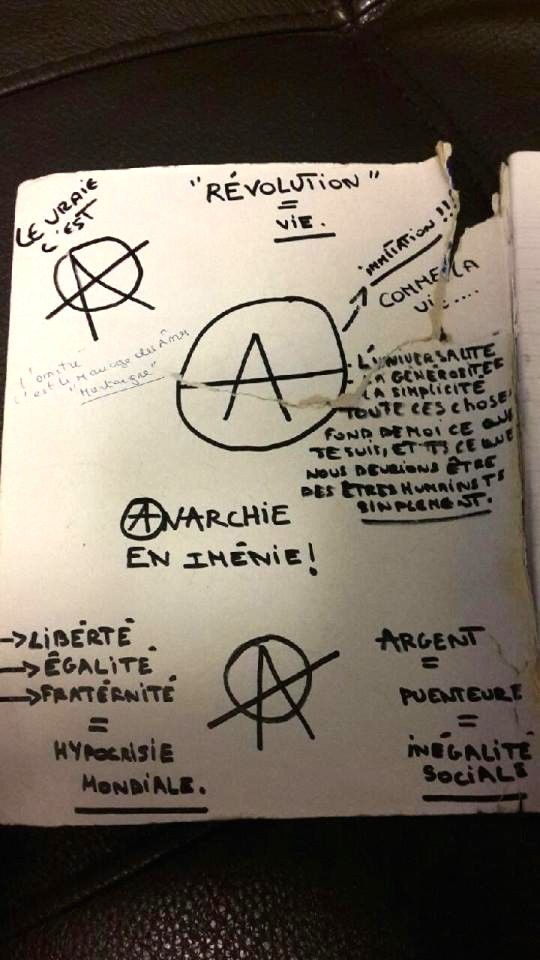 LE VRAIE
C'EST
"RÉVOLUTION"
=
VIE.
IMMITATION!!!
COMME LA
VIE....
L'amitié
c'est le mariage des Âmes
"Montaigne"
L'UNIVERSALITÉ
LA GÉNÉROSITÉE
LA SIMPLICITÉ
TOUTE CES CHOSE
FOND DE MOI CE QUE
JE SUIS, ET TS CE QUE
NOUS DEVRIONS ÊTRE
DES ÊTRES HUMAINS TS
SIMPLEMENT.
ANARCHIE
EN IMÉNIE!
→LIBÉRTÉ
→ÉGALITÉ
→FRATÉRNITÉ
=
HYPOCRISIE
MONDIALE.
ARGENT
=
PUENTEURE
=
INÉGALITÉ
SOCIALE